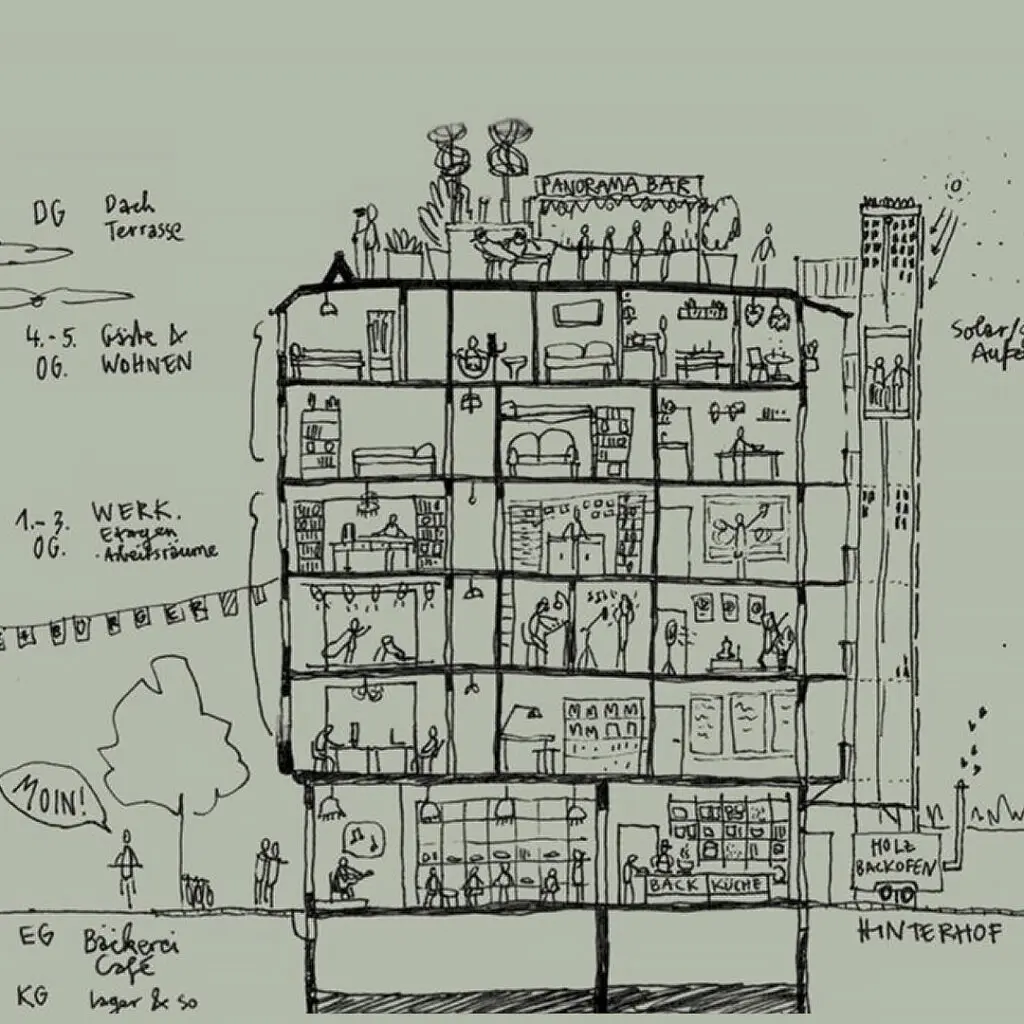 PANORAMA BAR
DG Dach
Terrasse
4.-5. Gäste &
OG. WOHNEN
Solar/
1.-3. WERK.
OG. Etagen
· Arbeitsräume
BURGER
MOIN!
HOLZ
BACKOFEN
BACK KÜCHE
HINTERHOF
EG Bäckerei
Café
KG Lager & so